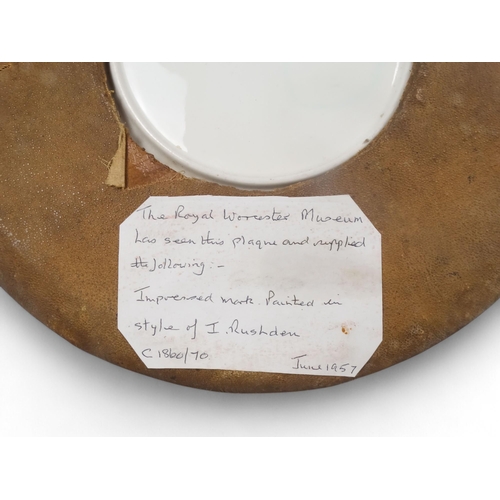 The Royal Worcester Museum
has seen this plaque and supplied
the following:-
Impressed mark. Painted in
style of I. Rushden
C 1860/70
June 1957